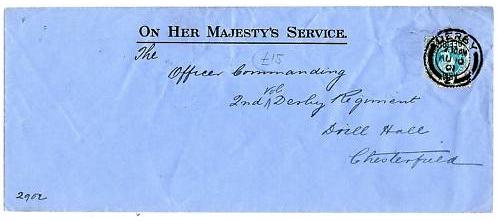 ON HER MAJESTY'S SERVICE.
The
£15
Officer Commanding
Vol
2nd Derby Regiment
Drill Hall
Chesterfield
DERBY
AU 10
01
2902